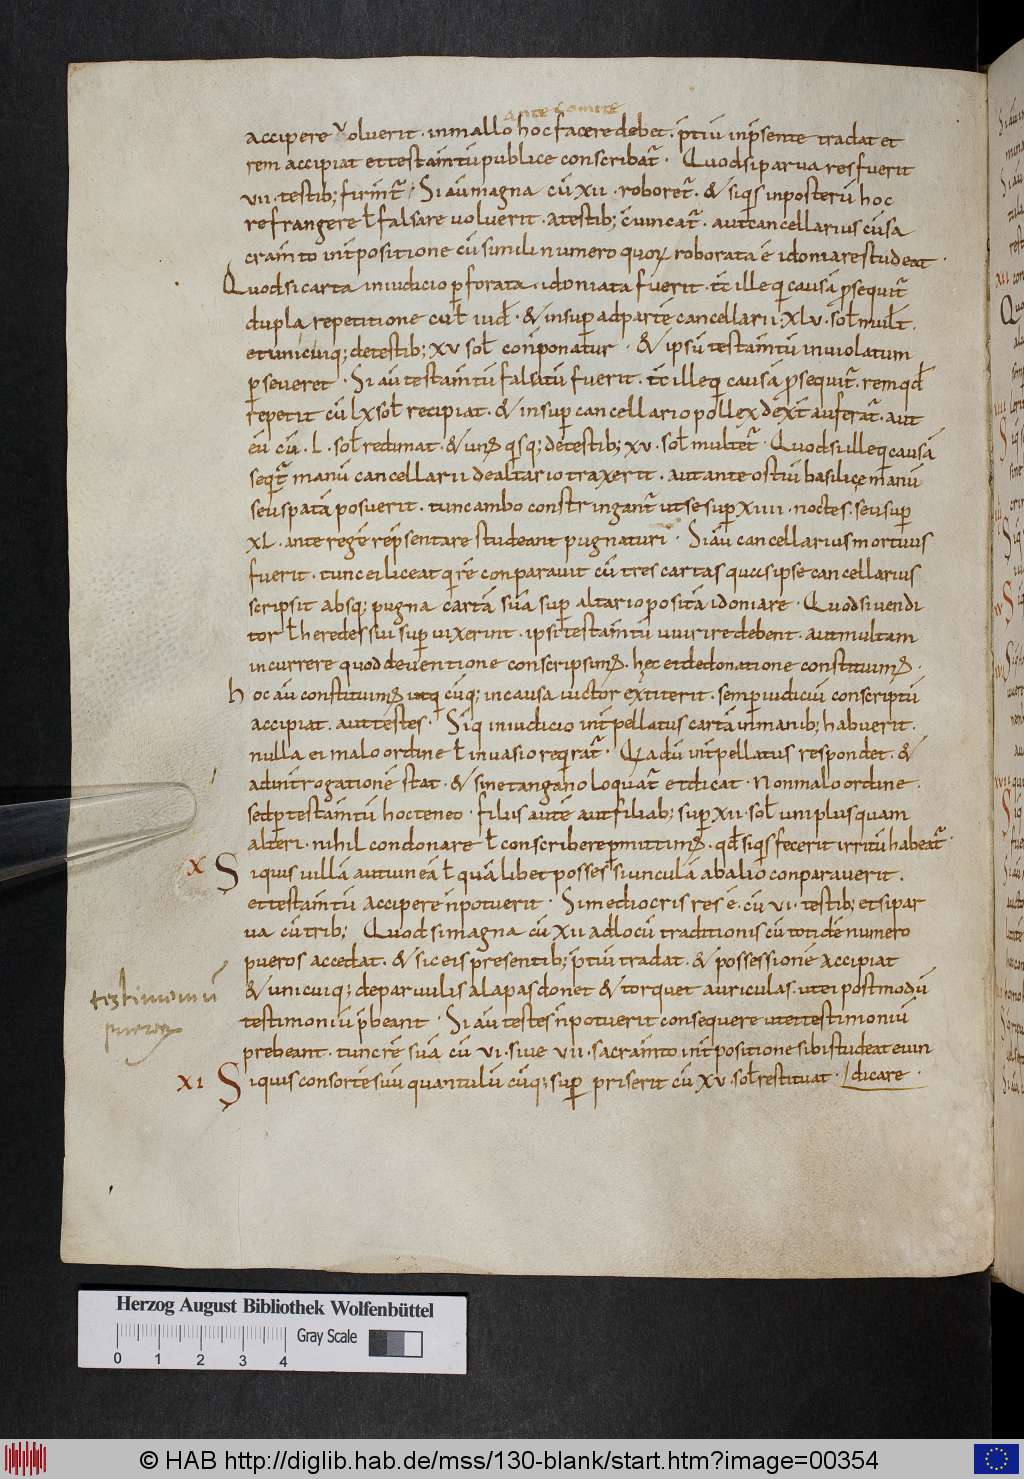 ante comite
accipere voluerit · inmallo hoc facere debet · p̄tiū inp̄sente tradat et
rem accipiat et testam̄tū publice conscribat̄ · Quodsi parua res fuerit
VII · testib; firm̄t̄ · Si aū magna cū XII · roboret̄ · & siq̄s inposterū hoc
refrangere ł falsare uoluerit · atestib; c̄uincat̄ · aut cancellarius cū sa
cram̄to int̄positione cū simili numero quoꝝ roborata ē idoniare studeat ·
Quodsi carta iniudicio ꝑforata · idoniata fuerit · tc̄ ille q̄ causā ꝓsequit̄
dupla repetitione cul̄ iud̄ · & insuꝑ ad partē cancellarii · XLV · sol̄ mul̄t ·
et unicuiq; detestib; XV sol̄ conponatur · & ipsū testam̄tū inuiolatum
ꝑseueret · Si aū testam̄tū falsatū fuerit · tc̄ ille q̄ causā ꝓsequit̄ · rem qd̄
repetit cū LX sol̄ recipiat · & insuꝑ cancellario pollex dext̄ auferat̄ · aut
eū cū · L · sol̄ redimat · & un͛ q̄sq; detestib; XV · sol̄ multet̄ · Quodsi ille q̄ causā
seqt̄ manū cancellarii dealtario traxerit · aut ante ostiū basilicę manū
seu spatā posuerit · tunc ambo constringant̄ ut se suꝑ XIIII · noctes · seu suꝑ
XL · ante regē rep̄sentare studeant pugnaturi · Si aū cancellarius mortuus
fuerit · tunc ei liceat q̄ rē conparauit cū tres cartas quas ipse cancellarius
scripsit absq; pugna cartā suā suꝑ altario positā idoniare · Quodsi uendi
tor ł heredes sui suꝑuixerint · ipsi testam̄tū uiurire debent · aut multam
incurrere quod deuentione conscripsim͛ · hec et dedonatione constituim͛ ·
hoc aū constituim͛ ut q̄cūq; incausa uictor extiterit · semꝑ iudiciū conscriptū
accipiat · aut testes · Siq̄ iniudicio int̄pellatus cartā inmanib; habuerit ·
nulla ei malo ordine ł inuasio req̄rat̄ · Q̄a dū int̄pellatus respondet · &
adint̄rogationē stat · & sine tangano loquat̄ et dicat · Non malo ordine ·
sed ꝑ testam̄tū hoc teneo · filius autē aut filiab; suꝑ XII · sol̄ uni plus quam
alteri · nihil condonare ł conscribere ꝑmittim͛ · qd̄ siq̄s fecerit irritū habeat̄ ·
X Siquis uillā aut uineā ł quālibet possessiunculā ab alio conparauerit ·
et testam̄tū accipere n̄ potuerit · Si mediocris res ē · cū VI · testib; et si par
ua cū trib; Quodsi magna cū XII adlocū traditionis cū totidē numero
pueros accedat · & sic eis presentib; p̄tiū tradat · & possessionē accipiat
& unicuiq; deparuulis alapas donet & torquet auriculas · ut ei postmodū
testimoniū p̄beant · Si aū testes n̄ potuerit consequere ut et testimoniū
prebeant · tunc rē suā cū VI · siue VII · sacram̄to int̄positione sibi studeat euin
XI Siquis consortē suū quantulūcūq; suꝑ priserit cū XV · sol̄ restituat · dicare ·
testimoniū
pueroꝝ
Herzog August Bibliothek Wolfenbüttel
Gray Scale
0 1 2 3 4
© HAB http://diglib.hab.de/mss/130-blank/start.htm?image=00354